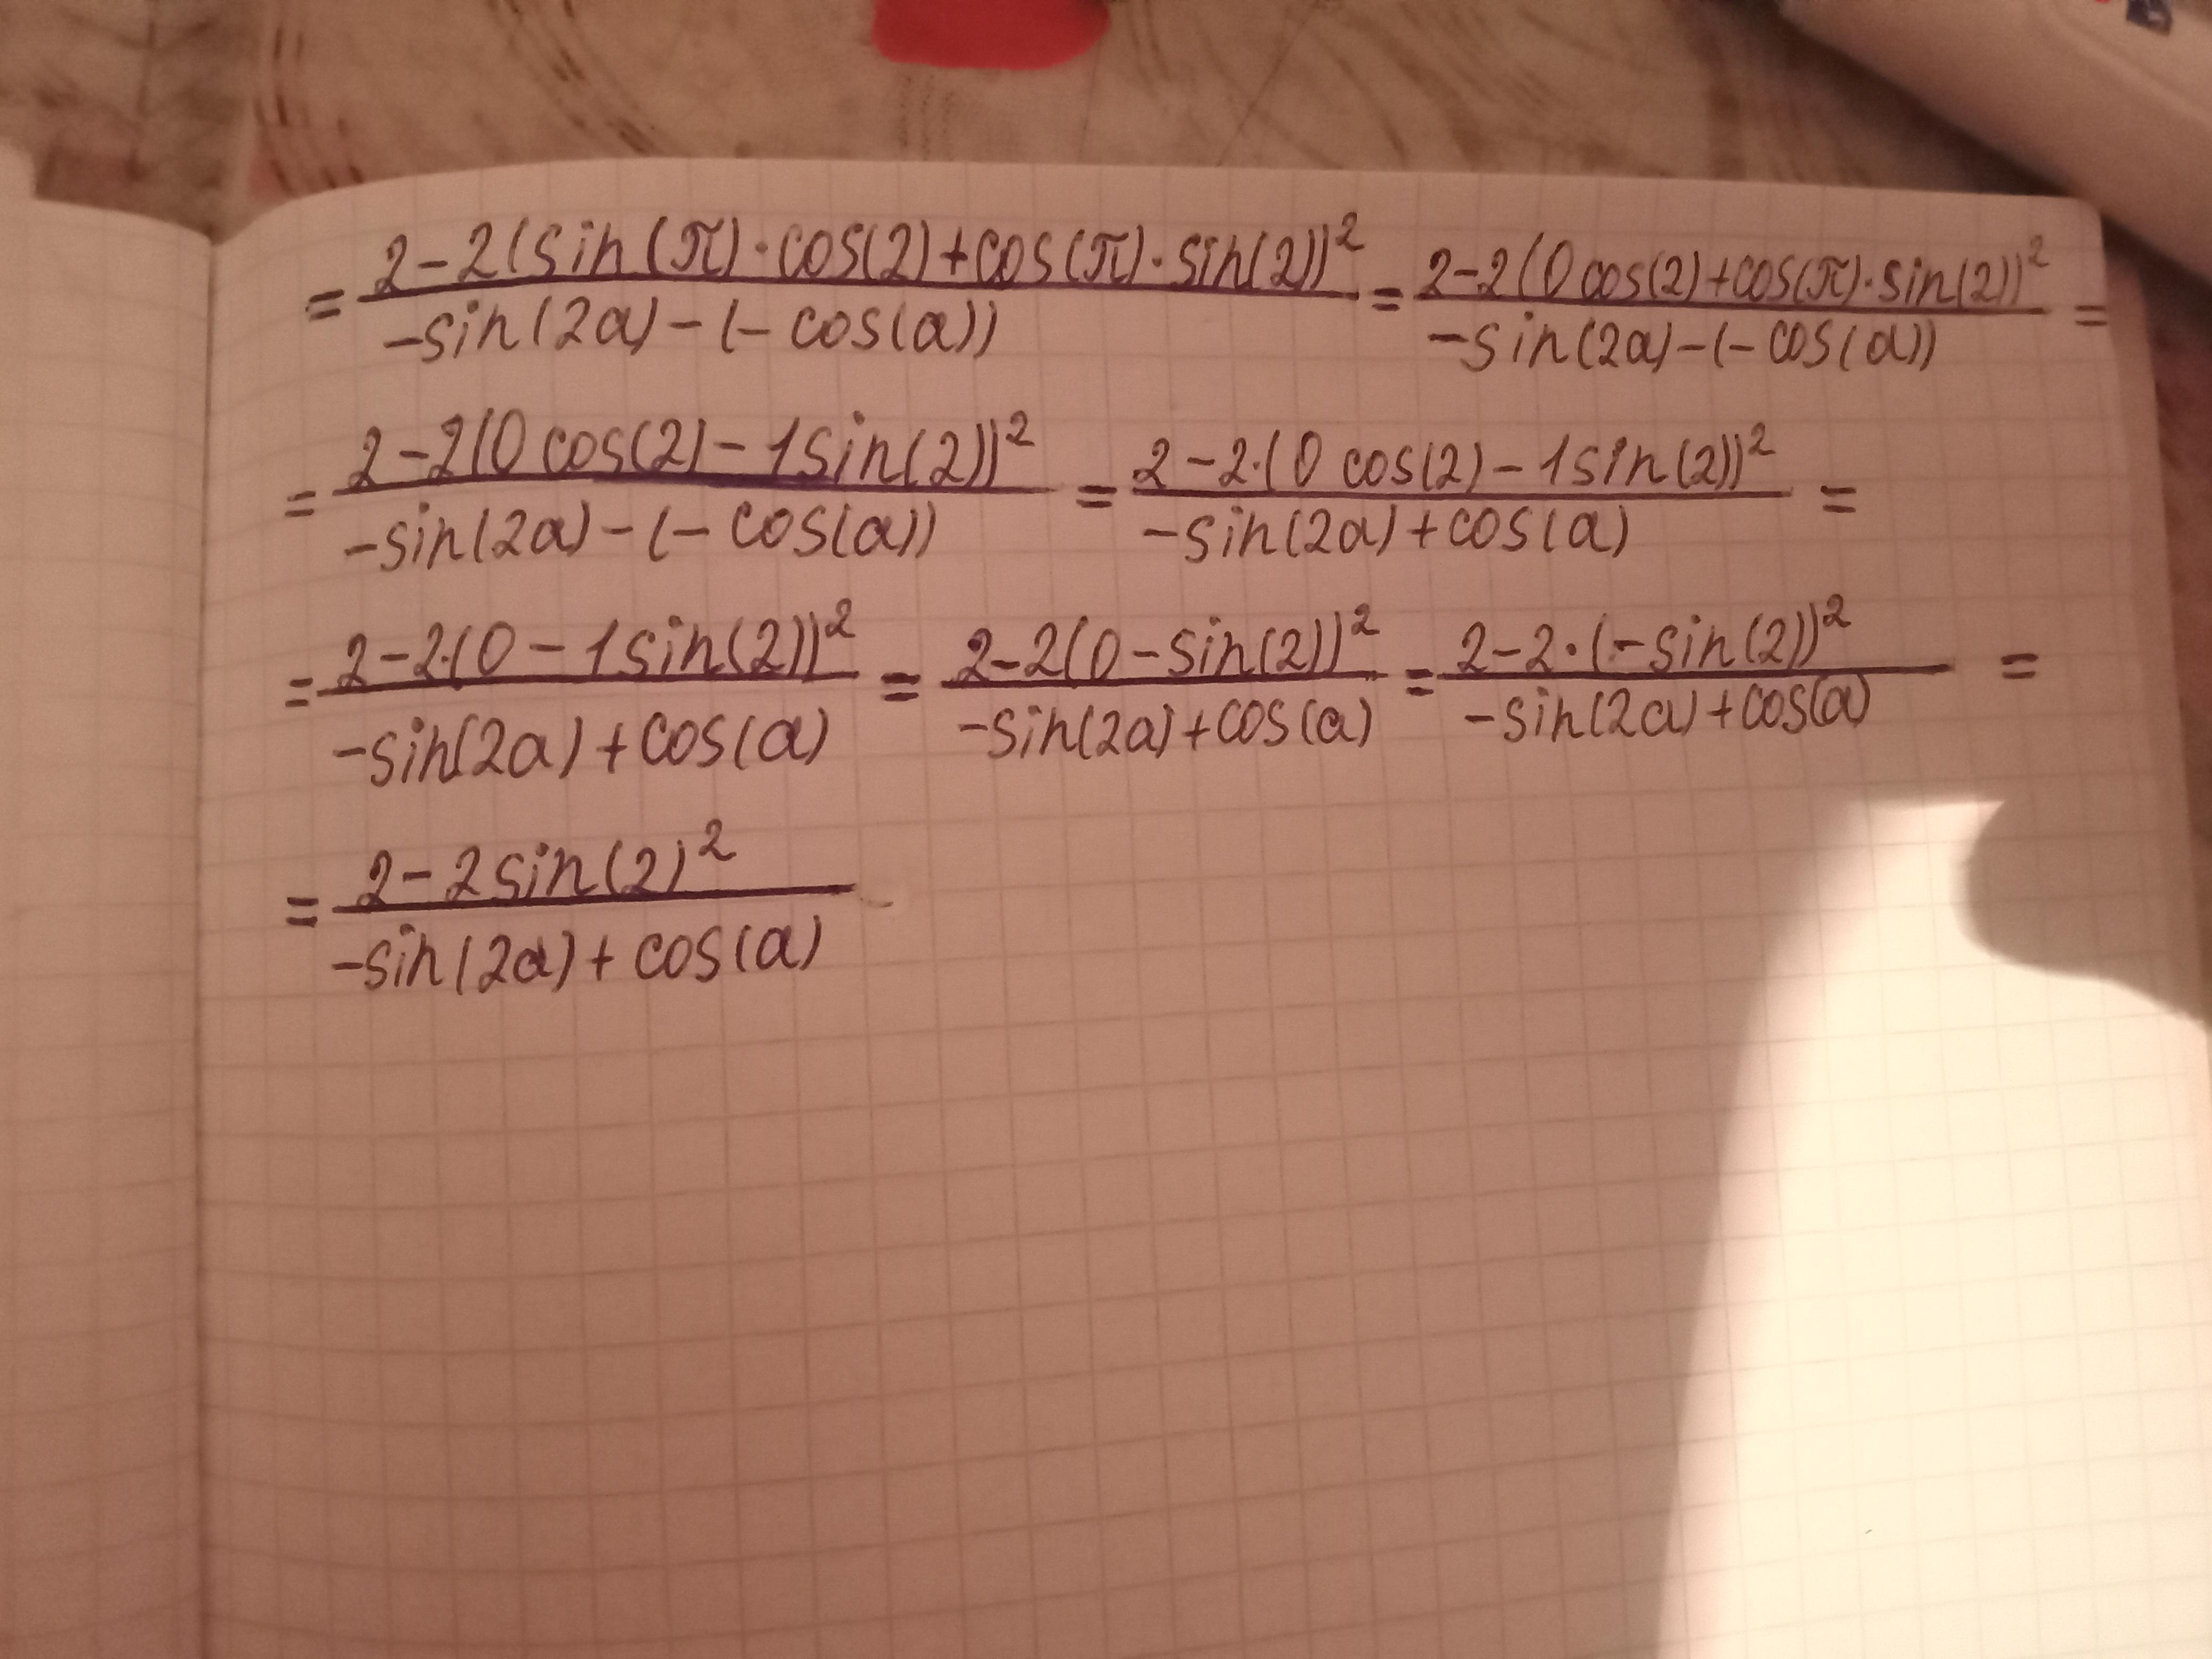 = (2-2(sin(π)·cos(2)+cos(π)·sin(2))²)/(-sin(2a)-(-cos(a))) = (2-2(0cos(2)+cos(π)·sin(2))²)/(-sin(2a)-(-cos(a))) =
= (2-2(0cos(2)-1sin(2))²)/(-sin(2a)-(-cos(a))) = (2-2·(0cos(2)-1sin(2))²)/(-sin(2a)+cos(a)) =
= (2-2·(0-1sin(2))²)/(-sin(2a)+cos(a)) = (2-2(0-sin(2))²)/(-sin(2a)+cos(a)) = (2-2·(-sin(2))²)/(-sin(2a)+cos(a)) =
= (2-2sin(2)²)/(-sin(2a)+cos(a))